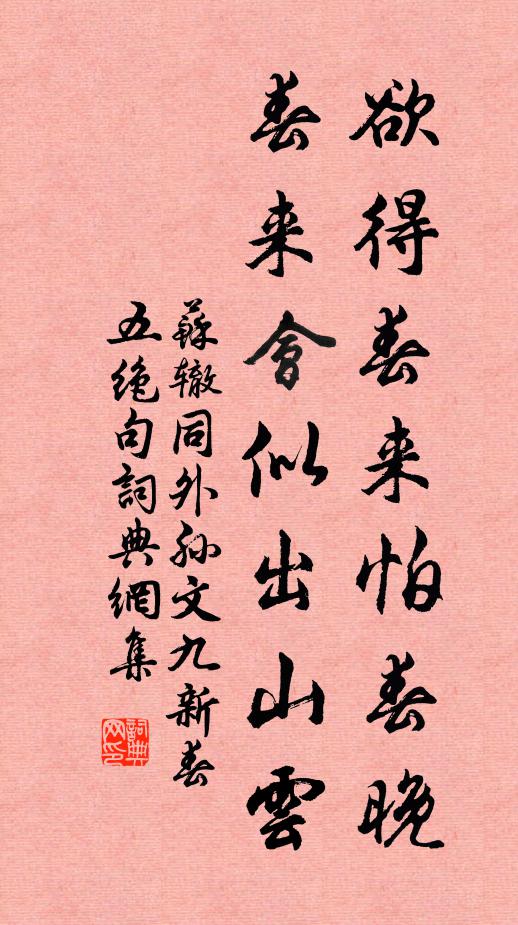 欲得春来怕春晚
春来會似出山雲
蘇辙同外孙文九新春
五绝句詞典網集
詞典
网印